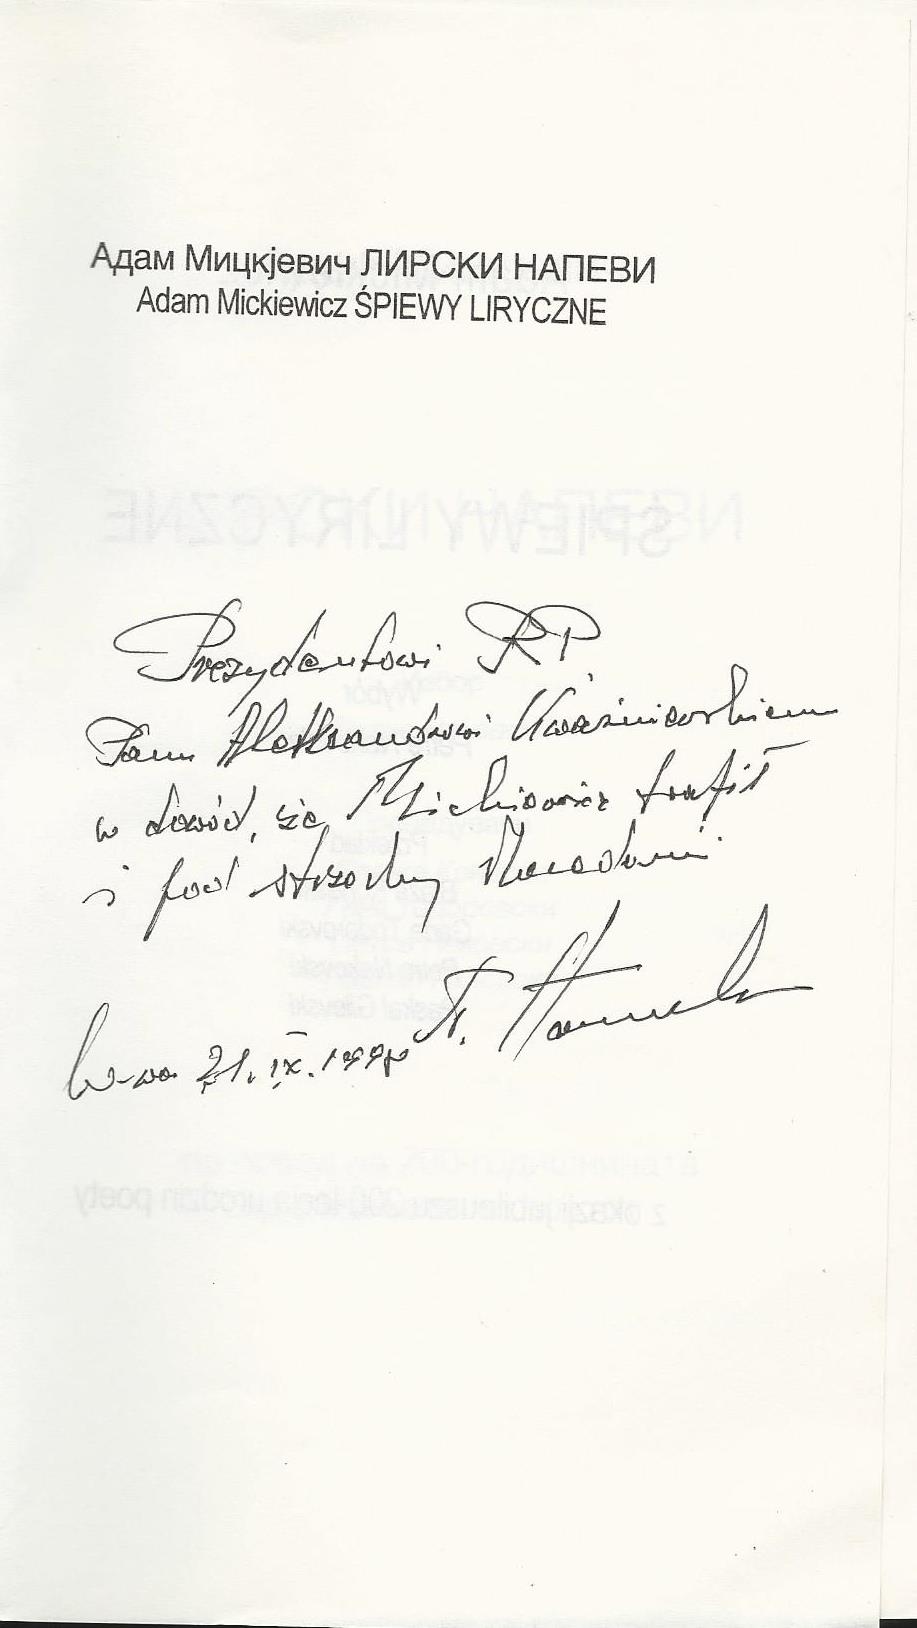 Адам Мицкјевич ЛИРСКИ НАПЕВИ
Adam Mickiewicz ŚPIEWY LIRYCZNE
Prezydentowi RP
Panu Aleksandrowi Kwaśniewskiemu
w dowód, że Mickiewicz trafił
i pod strzechy Macedonii
W-wa 21.IX.199